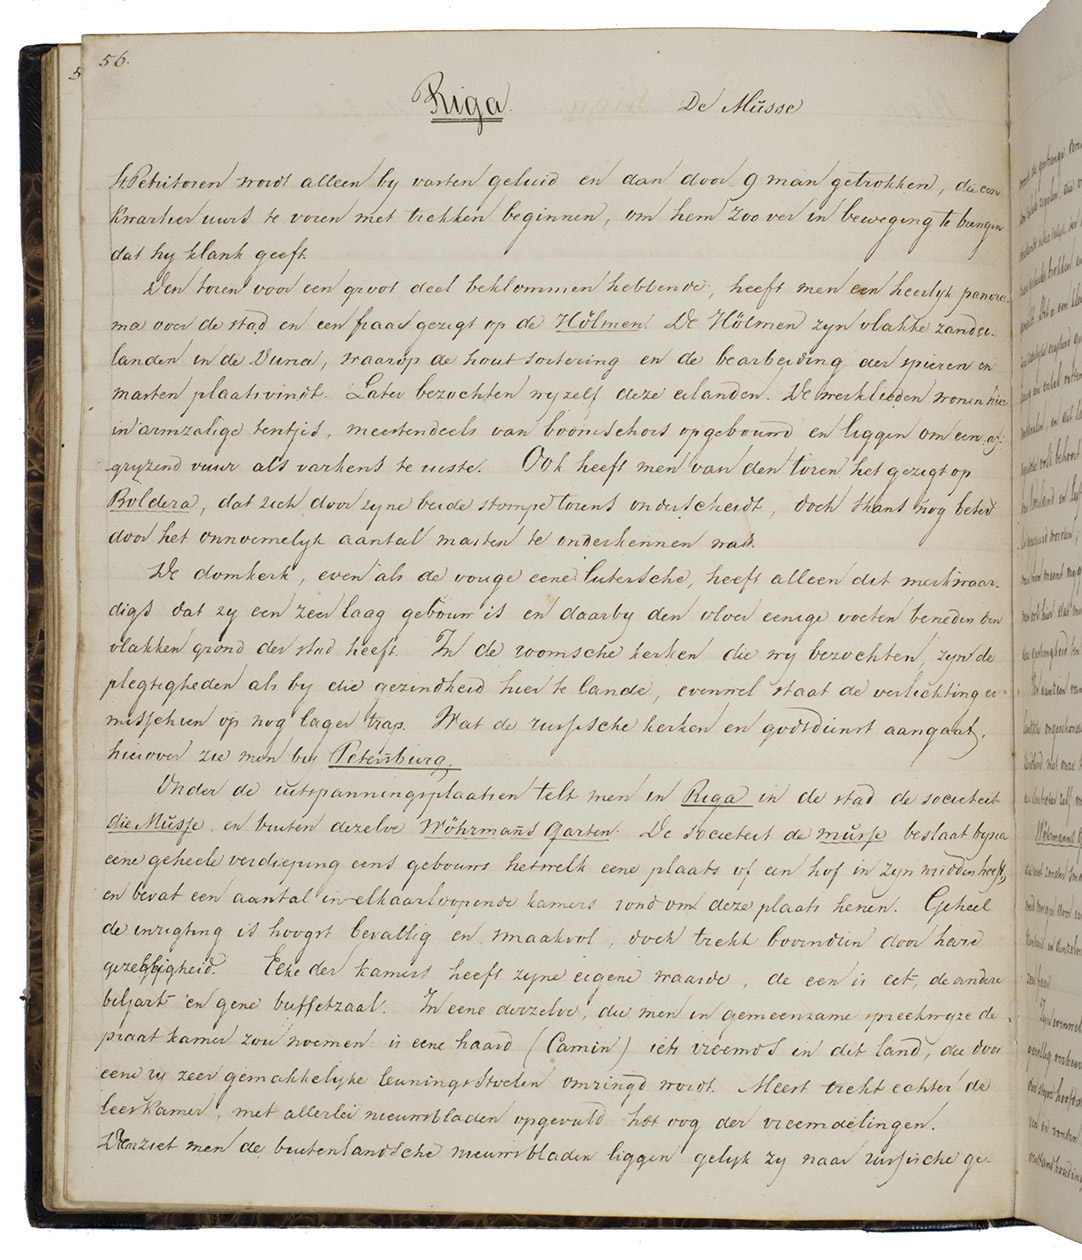 56.
Riga. De Műsse
St Petritoren wordt alleen by varten geluid en dan door 9 man getrokken, die een
kwartier uurs te voren met trekken beginnen, om hem zoo ver in beweging te brengen
dat hy klank geeft.
Den toren voor een groot deel beklommen hebbende, heeft men een heerlyk panora-
ma over de stad en een fraai gezigt op de Hölmen. De Hölmen zyn vlakke zandei-
landen in de Duna, waarop de hout sortering en de bearbeiding der spieren en
masten plaatsvindt. Later bezochten wy zelf deze eilanden. De werklieden wonen hier
in armzalige tentjes, meestendeels van boomschors opgebouwd en liggen om een af-
gryzend vuur als varkens te rusten. Ook heeft men van den toren het gezigt op
Boldera, dat zich door zyne beide stompe torens onderscheidt, doch thans nog beter
door het onnoemelyk aantal masten te onderkennen was.
De domkerk, even als de vorige eene lutersche, heeft alleen dit merkwaar-
digs dat zy een zeer laag gebouw is en daarby den vloer eenige voeten beneden den
vlakken grond der stad heeft. In de roomsche kerken die wy bezochten, zyn de
plegtigheden als by die gezindheid hier te lande, evenwel staat de verlichting er
misschien op nog lager trap. Wat de russische kerken en godtdienst aangaat,
hierover zie men bij Petersburg.
Onder de uitspanningsplaatsen telt men in Riga in de stad de societeit
die Műsse, en buiten dezelve Wöhrmanns Garten. De societeit de műsse beslaat byna
eene geheele verdieping eens gebouws hetwelk eene plaats of een hof in zyn midden heeft,
en bevat een aantal in elkaar loopende kamers rond om deze plaats henen. Geheel
de inrigting is hoogst bevallig en smaakvol, doch trekt bovendien door hare
gezelligheid. Elke der kamers heeft zyne eigene waarde, de een is eet, de andere
biljart en gene buffetzaal. In eene derzelve, die men in gemeenzame spreekwyze de
praat kamer zou noemen is eene haard (Camin) iets vreemds in dit land, die door
eene ry zeer gemakkelyke leuningstoelen omringd wordt. Meest trekt echter de
leeskamer, met allerlei nieuwsbladen opgevuld het oog der vreemdelingen.
Hier ziet men de buitenlandsche nieuwsbladen liggen gelyk zy naar russische ge-